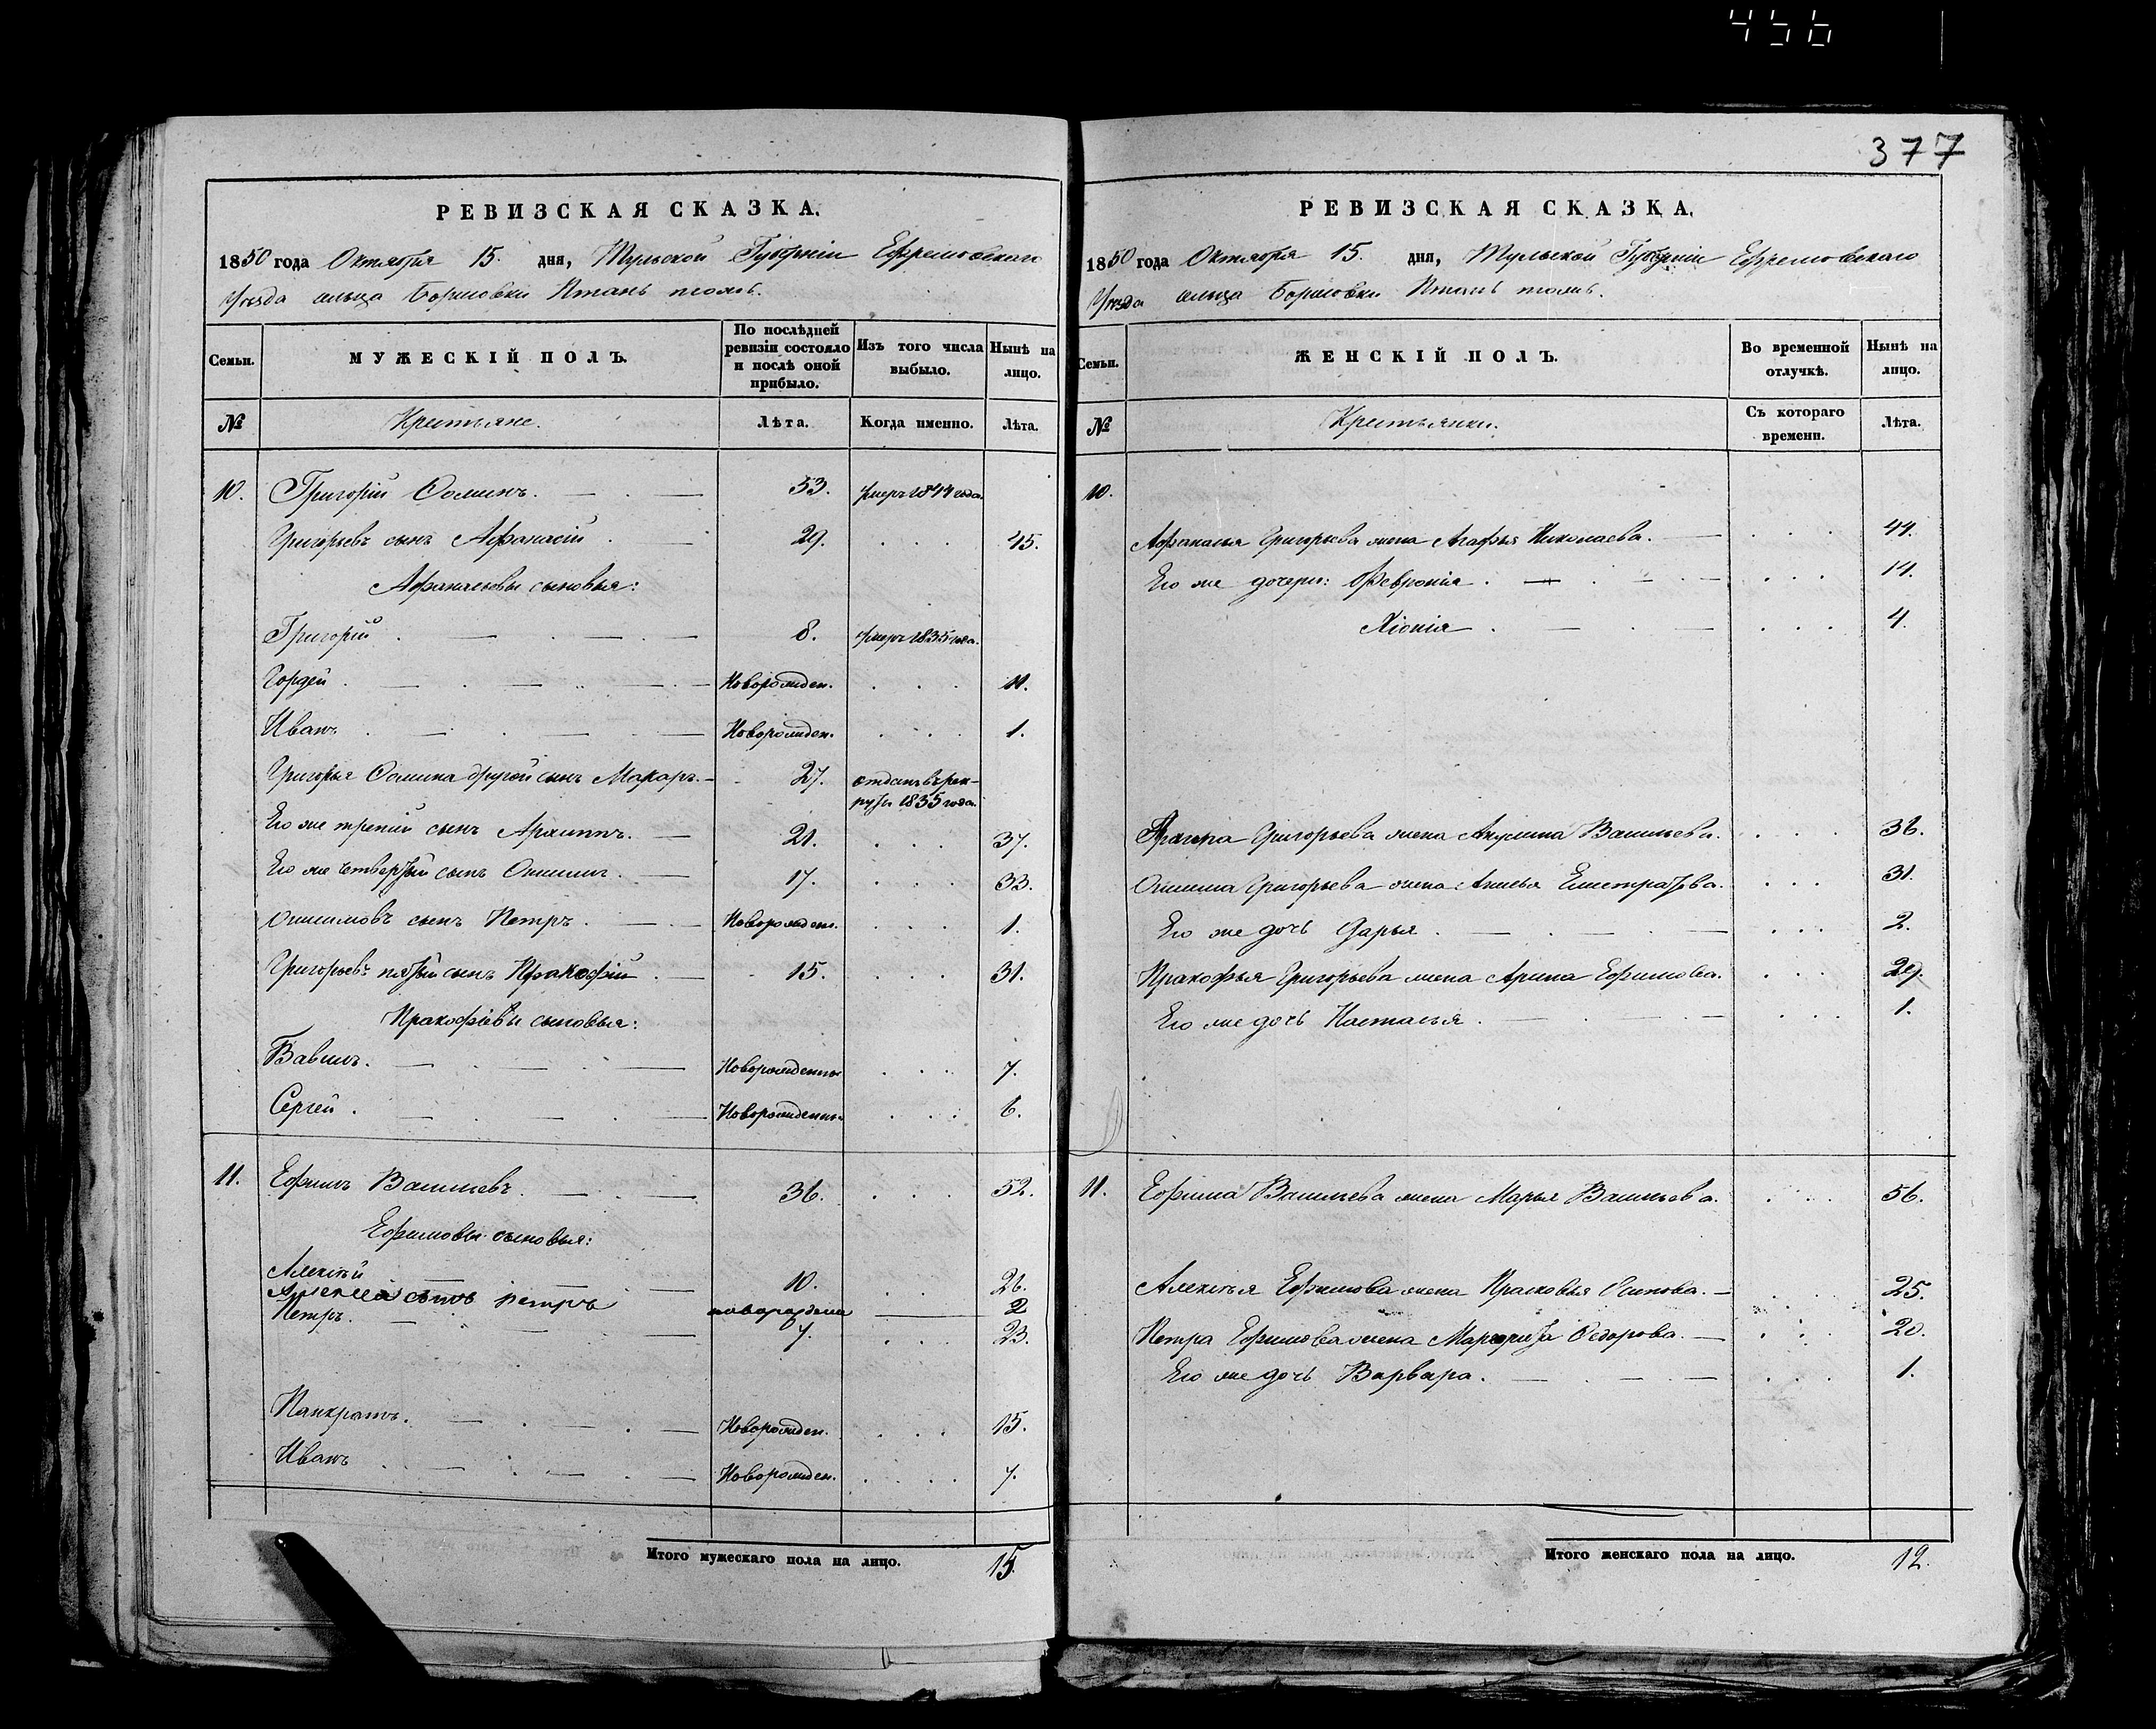 456
377
РЕВИЗСКАЯ СКАЗКА.
1850 года Октября 15. дня, Тульской Губерніи Ефремовскаго
Уѣзда сельца Борисовки Птань тожъ.
Семьи.
МУЖЕСКІЙ ПОЛЪ.
По послѣдней ревизіи состояло и послѣ оной прибыло.
Изъ того числа выбыло.
Нынѣ на лицо.
№
Крестьяне.
Лѣта.
Когда именно.
Лѣта.
10. Григорій Фоминъ. 53. умеръ 1844 года.
Григорьевъ сынъ Афанасій 29. 45.
Афанасьевы сыновья:
Григорій 8. умеръ 1835 года.
Гордей Новорожден. 11.
Иванъ Новорожден. 1.
Григорья Фомина другой сынъ Макаръ. 27. отданъ въ рек-
руты 1835 года.
Его же третій сынъ Архиппъ. 21. 37.
Его же четвертый сынъ Онисимъ. 17. 33.
Онисимовъ сынъ Петръ. Новорожден. 1.
Григорьевъ пятый сынъ Пракофій 15. 31.
Пракофіевы сыновья:
Вавилъ. Новорожденъ 7.
Сергей. Новорожденъ 6.
11. Ефимъ Васильевъ. 36. 52.
Ефимовы сыновья:
Алексѣй 10. 26.
Алексея сынъ петръ новорожденъ 2
Петръ. 7. 23.
Панкратъ. Новорожден. 15.
Иванъ Новорожден. 7.
Итого мужескаго пола на лицо. 15.
РЕВИЗСКАЯ СКАЗКА.
1850 года Октября 15. дня, Тульской Губерніи Ефремовскаго
Уѣзда сельца Борисовки Птань тожъ.
Семьи.
ЖЕНСКІЙ ПОЛЪ.
Во временной отлучкѣ.
Нынѣ на лицо.
№
Крестьянки.
Съ котораго времени.
Лѣта.
10.
Афанасья Григорьева жена Агафья Николаева. 44.
Его же дочери: Февронія 14.
Хіонія 4.
Архипа Григорьева жена Акулина Васильева. 36.
Онисима Григорьева жена Анисья Елистратова. 31.
Его же дочь Дарья 2.
Пракофья Григорьева жена Арина Ефимова. 29.
Его же дочь Настасья 1.
11. Ефима Васильева жена Марья Васильева. 56.
Алексѣя Ефимова жена Прасковья Осипова. 25.
Петра Ефимова жена Маргарита Федорова. 20.
Его же дочь Варвара. 1.
Итого женскаго пола на лицо. 12.